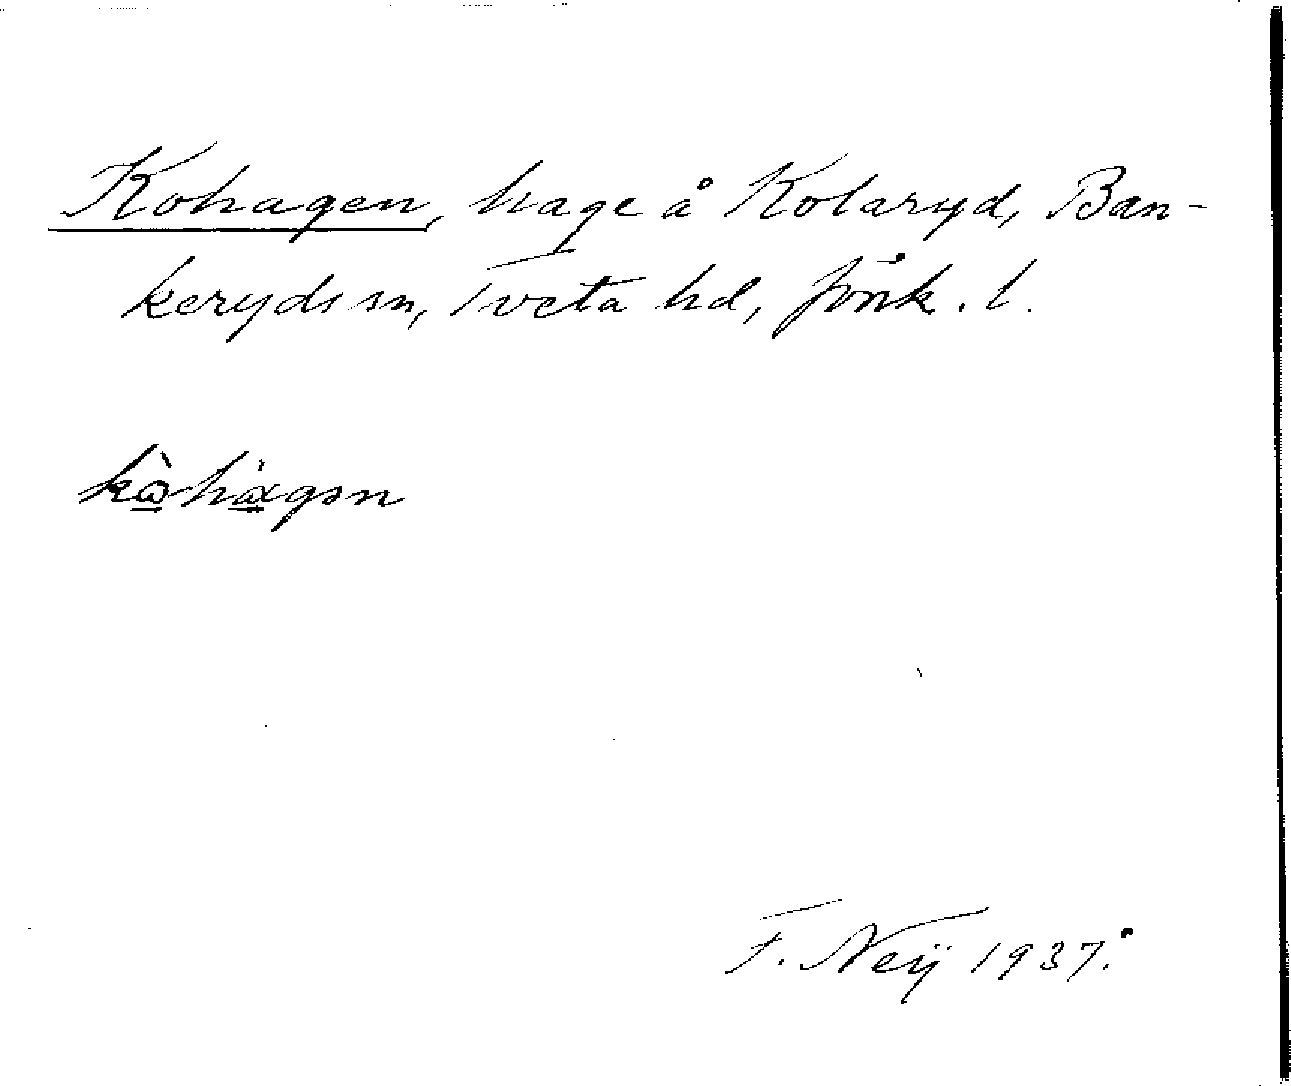 Kohagen, hage å Kolaryd, Ban-
keryds sn, Tveta hd, Jönk. l.
kòhàgən
F. Neij 1937.